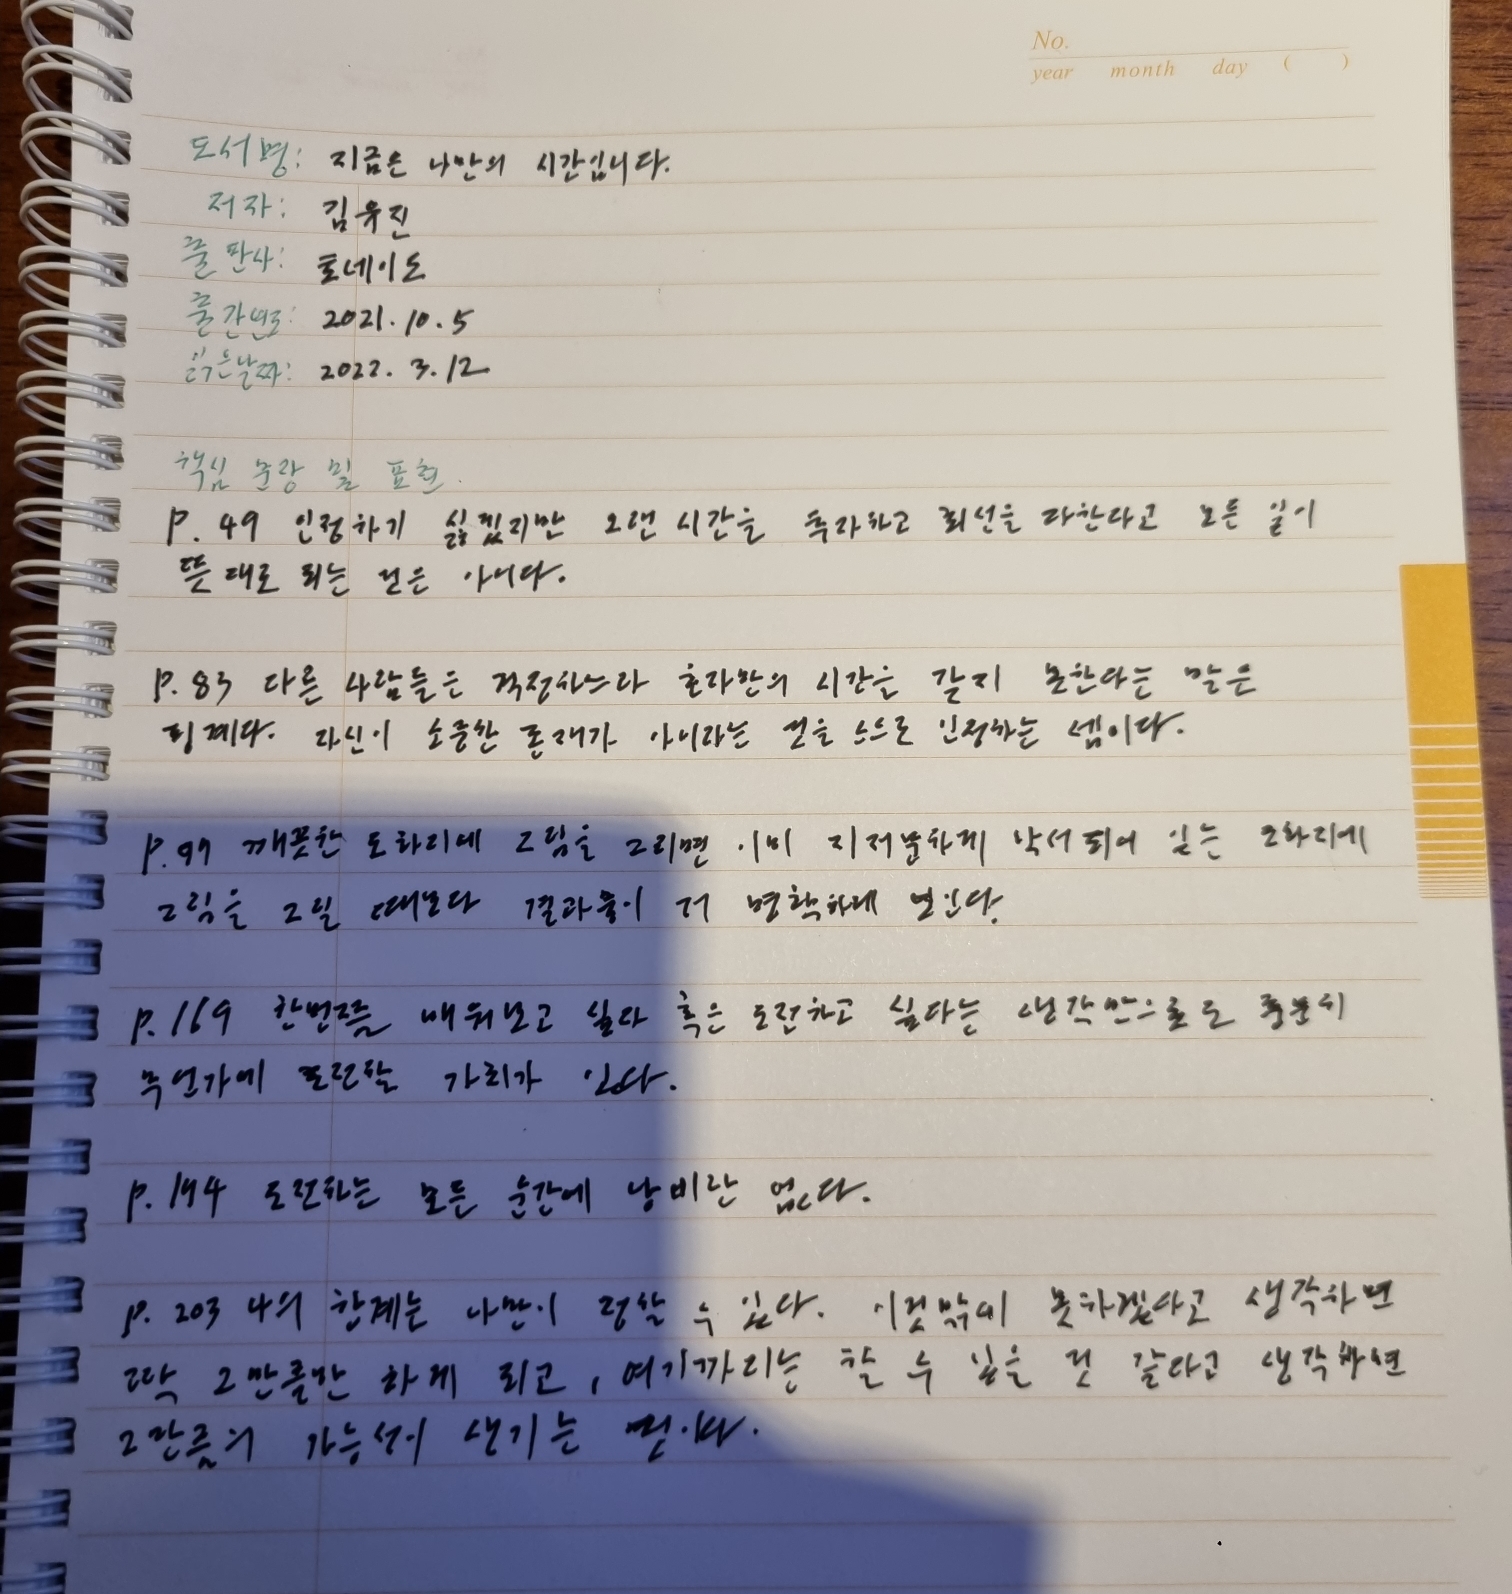 No.
year month day ( )
도서명: 지금은 나만의 시간입니다.
저자: 김유진
출판사: 토네이도
출간연도: 2021.10.5
읽은날짜: 2022.3.12
핵심 문장 및 표현.
p.49 인정하기 싫겠지만 오랜 시간을 투자하고 최선을 다한다고 모든 일이
뜻대로 되는 건은 아니다.
p.83 다른 사람들은 걱정하느라 혼자만의 시간을 갖지 못한다는 말은
핑계다. 자신이 소중한 존재가 아니라는 것을 스스로 인정하는 셈이다.
p.99 깨끗한 도화지에 그림을 그리면 이미 지저분하게 낙서되어 있는 도화지에
그림을 그릴 때보다 결과물이 더 명확하게 보인다.
p.169 한번쯤 배워보고 싶다 혹은 도전하고 싶다는 생각만으로도 충분히
무언가에 도전할 가치가 있다.
p.194 도전하는 모든 순간에 낭비란 없다.
p.203 나의 한계는 나만이 정할 수 있다. 이것밖에 못하겠다고 생각하면
딱 그만큼만 하게 되고, 여기까지는 할 수 있을 것 같다고 생각하면
그만큼의 가능성이 생기는 것이다.